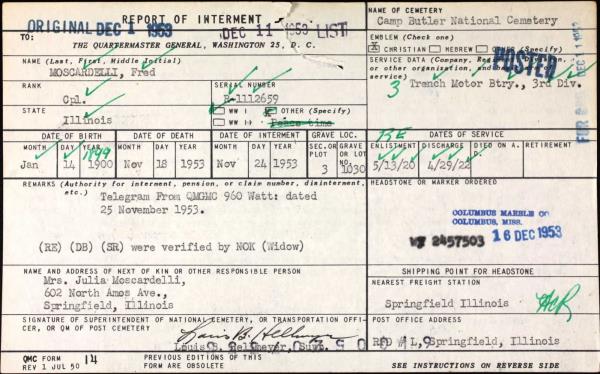 REPORT OF INTERMENT
ORIGINAL DEC 1 1953
DEC 11 1953 LIST
TO:
THE QUARTERMASTER GENERAL, WASHINGTON 25, D. C.
NAME OF CEMETERY
Camp Butler National Cemetery
EMBLEM (Check one)
X CHRISTIAN HEBREW OTHER (Specify)
NAME (Last, First, Middle Initial)
MOSCARDELLI, Fred
SERVICE DATA (Company, Regiment, Division, or other organization, and branch of service)
POSTED
DEC 11 1953
3 Trench Motor Btry., 3rd Div.
RANK
Cpl.
SERIAL NUMBER
R-1112659
STATE
Illinois
WW I
X OTHER (Specify)
WW II
Peace time
DATE OF BIRTH
DATE OF DEATH
DATE OF INTERMENT
GRAVE LOC.
RE
DATES OF SERVICE
MONTH DAY YEAR
MONTH DAY YEAR
MONTH DAY YEAR
SEC. OR PLOT
GRAVE NO.
ENLISTMENT
DISCHARGE
DIED ON A. D.
RETIREMENT
1899
Jan 14 1900
Nov 18 1953
Nov 24 1953
3
1030
5/13/20
4/29/22
REMARKS (Authority for interment, pension, or claim number, disinterment, etc.)
Telegram From QMGMC 960 Watt: dated
25 November 1953.
(RE) (DB) (SR) were verified by NOK (Widow)
HEADSTONE OR MARKER ORDERED
COLUMBUS MARBLE CO
COLUMBUS, MISS.
2457503
16 DEC 1953
NAME AND ADDRESS OF NEXT OF KIN OR OTHER RESPONSIBLE PERSON
Mrs. Julia Moscardelli,
602 North Amos Ave.,
Springfield, Illinois
SHIPPING POINT FOR HEADSTONE
NEAREST FREIGHT STATION
Springfield Illinois
SIGNATURE OF SUPERINTENDENT OF NATIONAL CEMETERY, OR TRANSPORTATION OFFICER, OR QM OF POST CEMETERY
Louis B. Hellmeyer
Louis B. Hellmeyer, Supt.
RFD # 1, Springfield, Illinois
QMC FORM 14
REV 1 JUL 50
PREVIOUS EDITIONS OF THIS FORM ARE OBSOLETE
SEE INSTRUCTIONS ON REVERSE SIDE